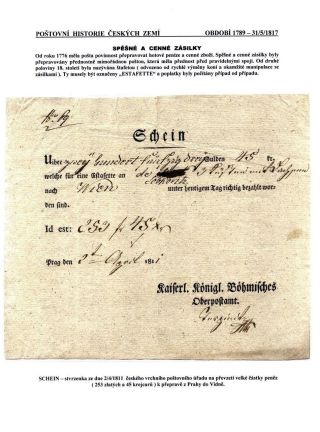 POŠTOVNÍ HISTORIE ČESKÝCH ZEMÍ OBDOBÍ 1789 – 31/5/1817
SPĚŠNÉ A CENNÉ ZÁSILKY
Od roku 1776 měla pošta povinnost přepravovat hotové peníze a cenné zboží. Spěšné a cenné zásilky byly
přepravovány přednostně mimořádnou poštou, která měla přednost před pravidelnými spoji. Od druhé
poloviny 18. století byla nazývána štafetou ( odvozeno od rychlé výměny koní a okamžité manipulace se
zásilkami ). Ty musely být označeny „ESTAFETTE" a poplatky byly počítány případ od případu.
Schein
Ueber zwey hundert fünfzig drey Gulden 45
welche für eine Estafette an
nach Wien unter heutigem Tag richtig bezahlt wor-
den sind.
Id est: 253 f 45 xr
Prag den 2 April 811
Kaiserl. Königl. Böhmisches
Oberpostamt.
SCHEIN – stvrzenka ze dne 2/4/1811 českého vrchního poštovního úřadu na převzetí velké částky peněz
( 253 zlatých a 45 krejcarů ) k přepravě z Prahy do Vídně.